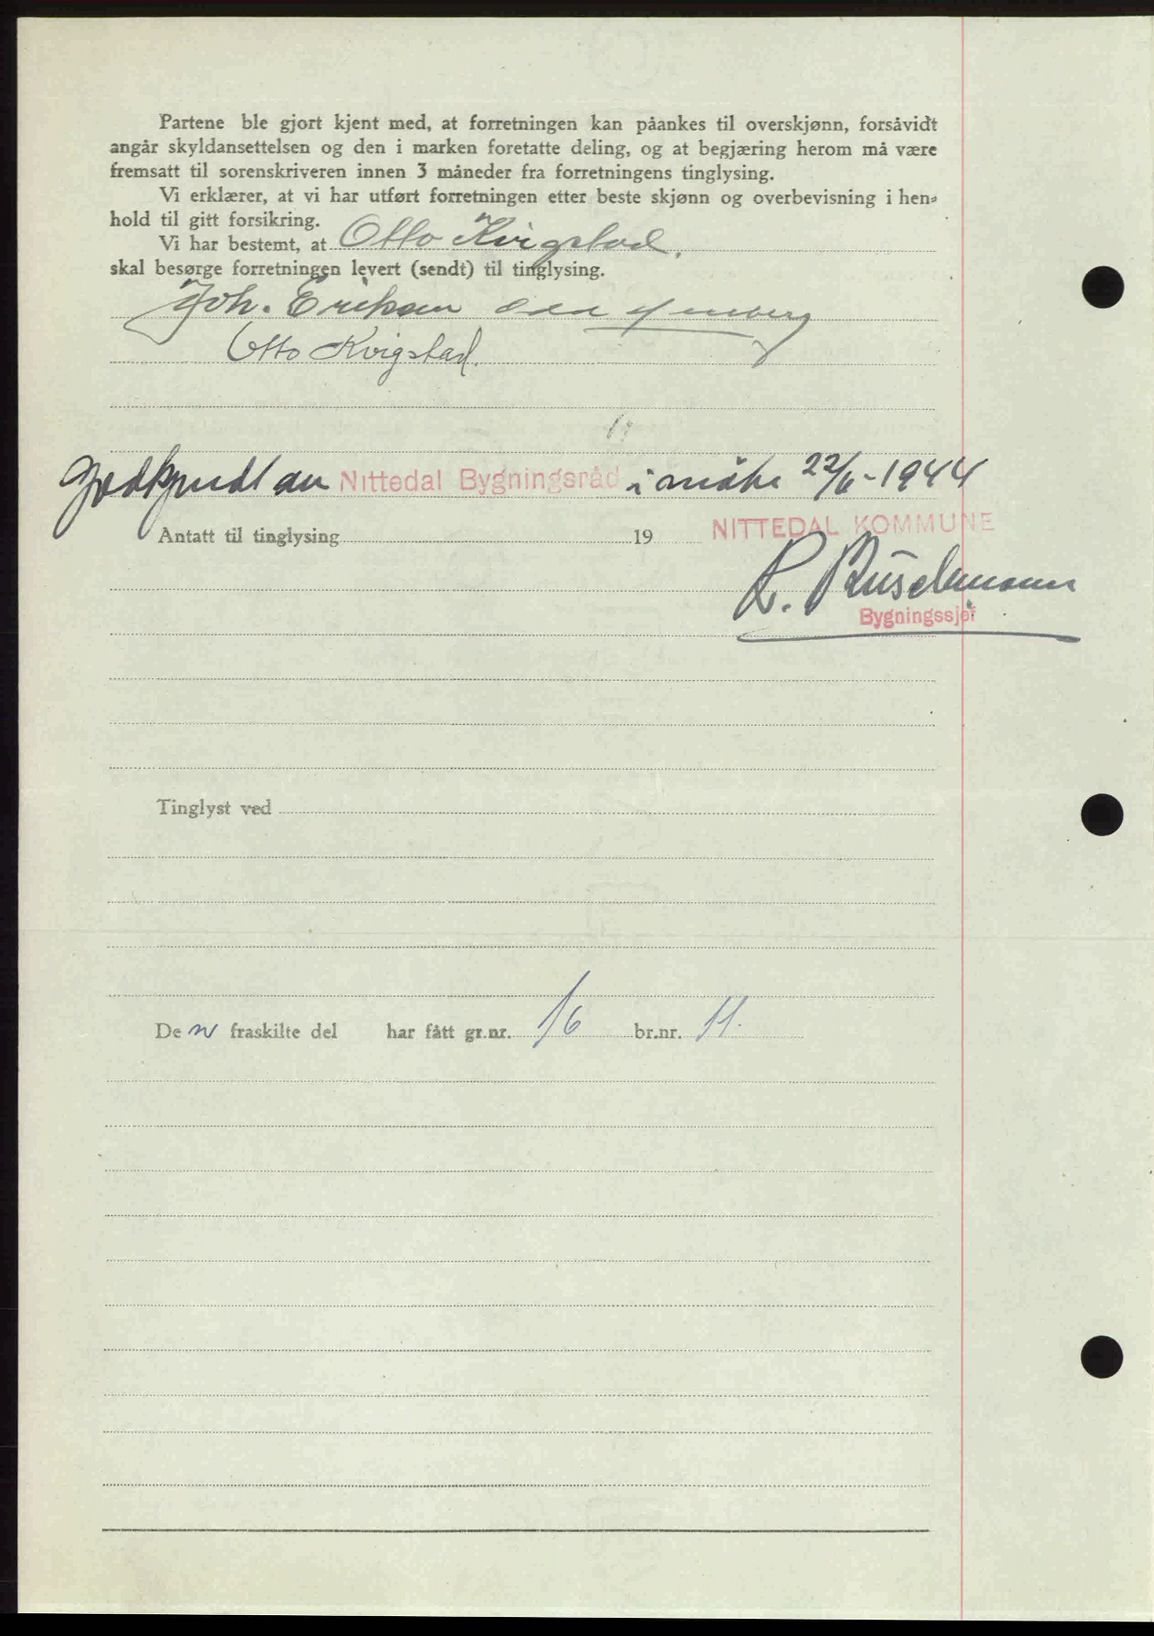 Partene ble gjort kjent med, at forretningen kan påankes til overskjønn, forsåvidt
angår skyldansettelsen og den i marken foretatte deling, og at begjæring herom må være
fremsatt til sorenskriveren innen 3 måneder fra forretningens tinglysing.
Vi erklærer, at vi har utført forretningen etter beste skjønn og overbevisning i hen-
hold til gitt forsikring.
Vi har bestemt, at Otto Kvigstad.
skal besørge forretningen levert (sendt) til tinglysing.
Joh. Eriksen
Otto Kvigstad.
Godkjendt av Nittedal Bygningsråd i møte 22/6-1944
Antatt til tinglysing 19
NITTEDAL KOMMUNE
Bygningssjef
Tinglyst ved
De n fraskilte del har fått gr.nr. 16 br.nr. 11.